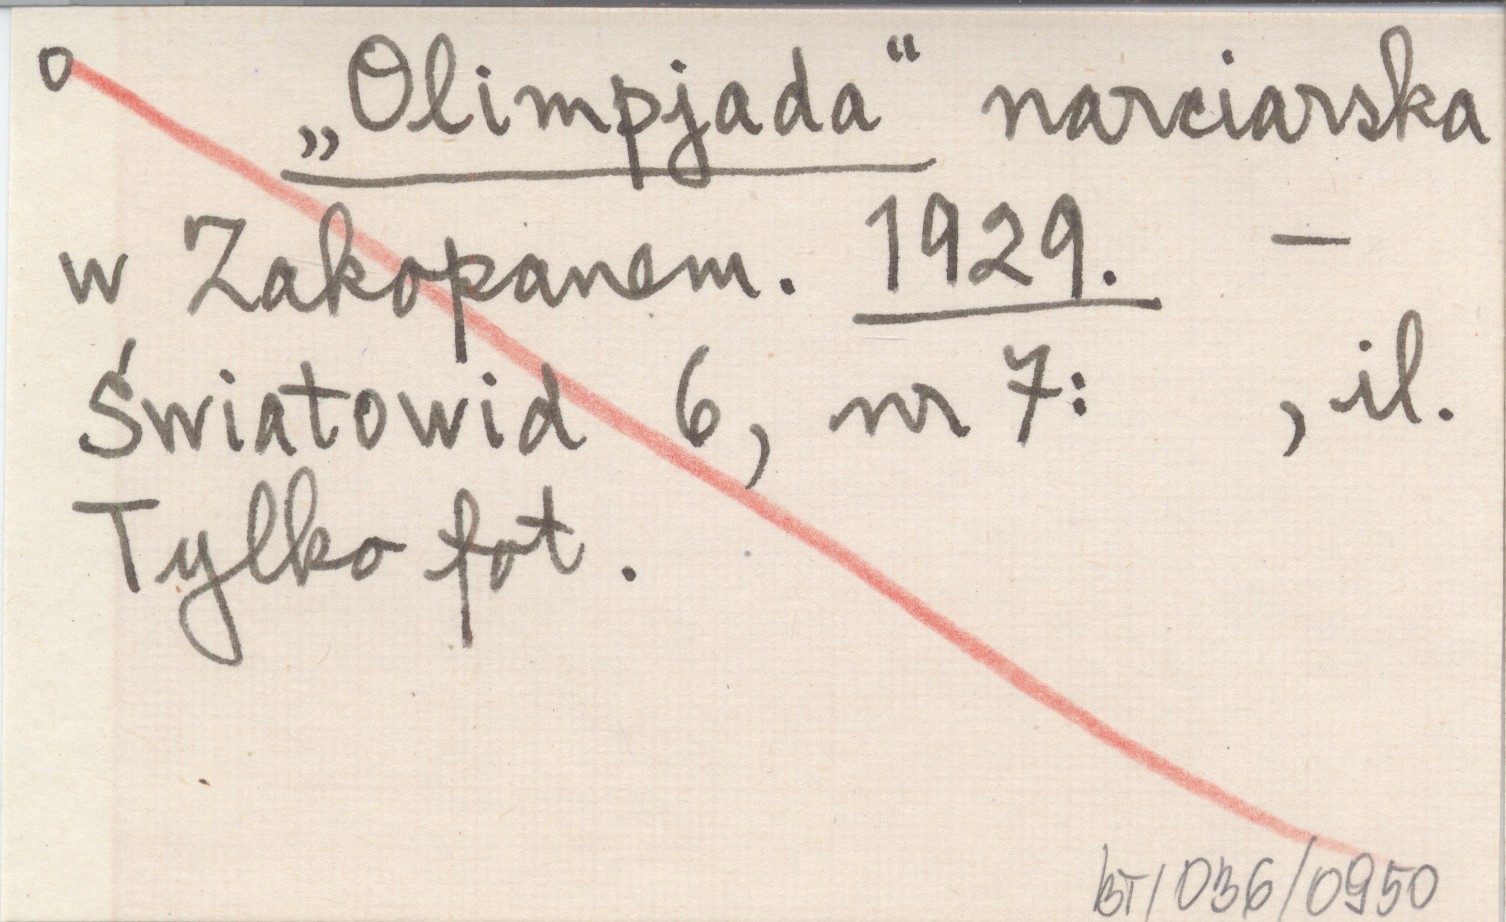 o „Olimpjada“ narciarska
w Zakopanem. 1929. —
Światowid 6, nr 7: , il.
Tylko fot.
BT/036/0950